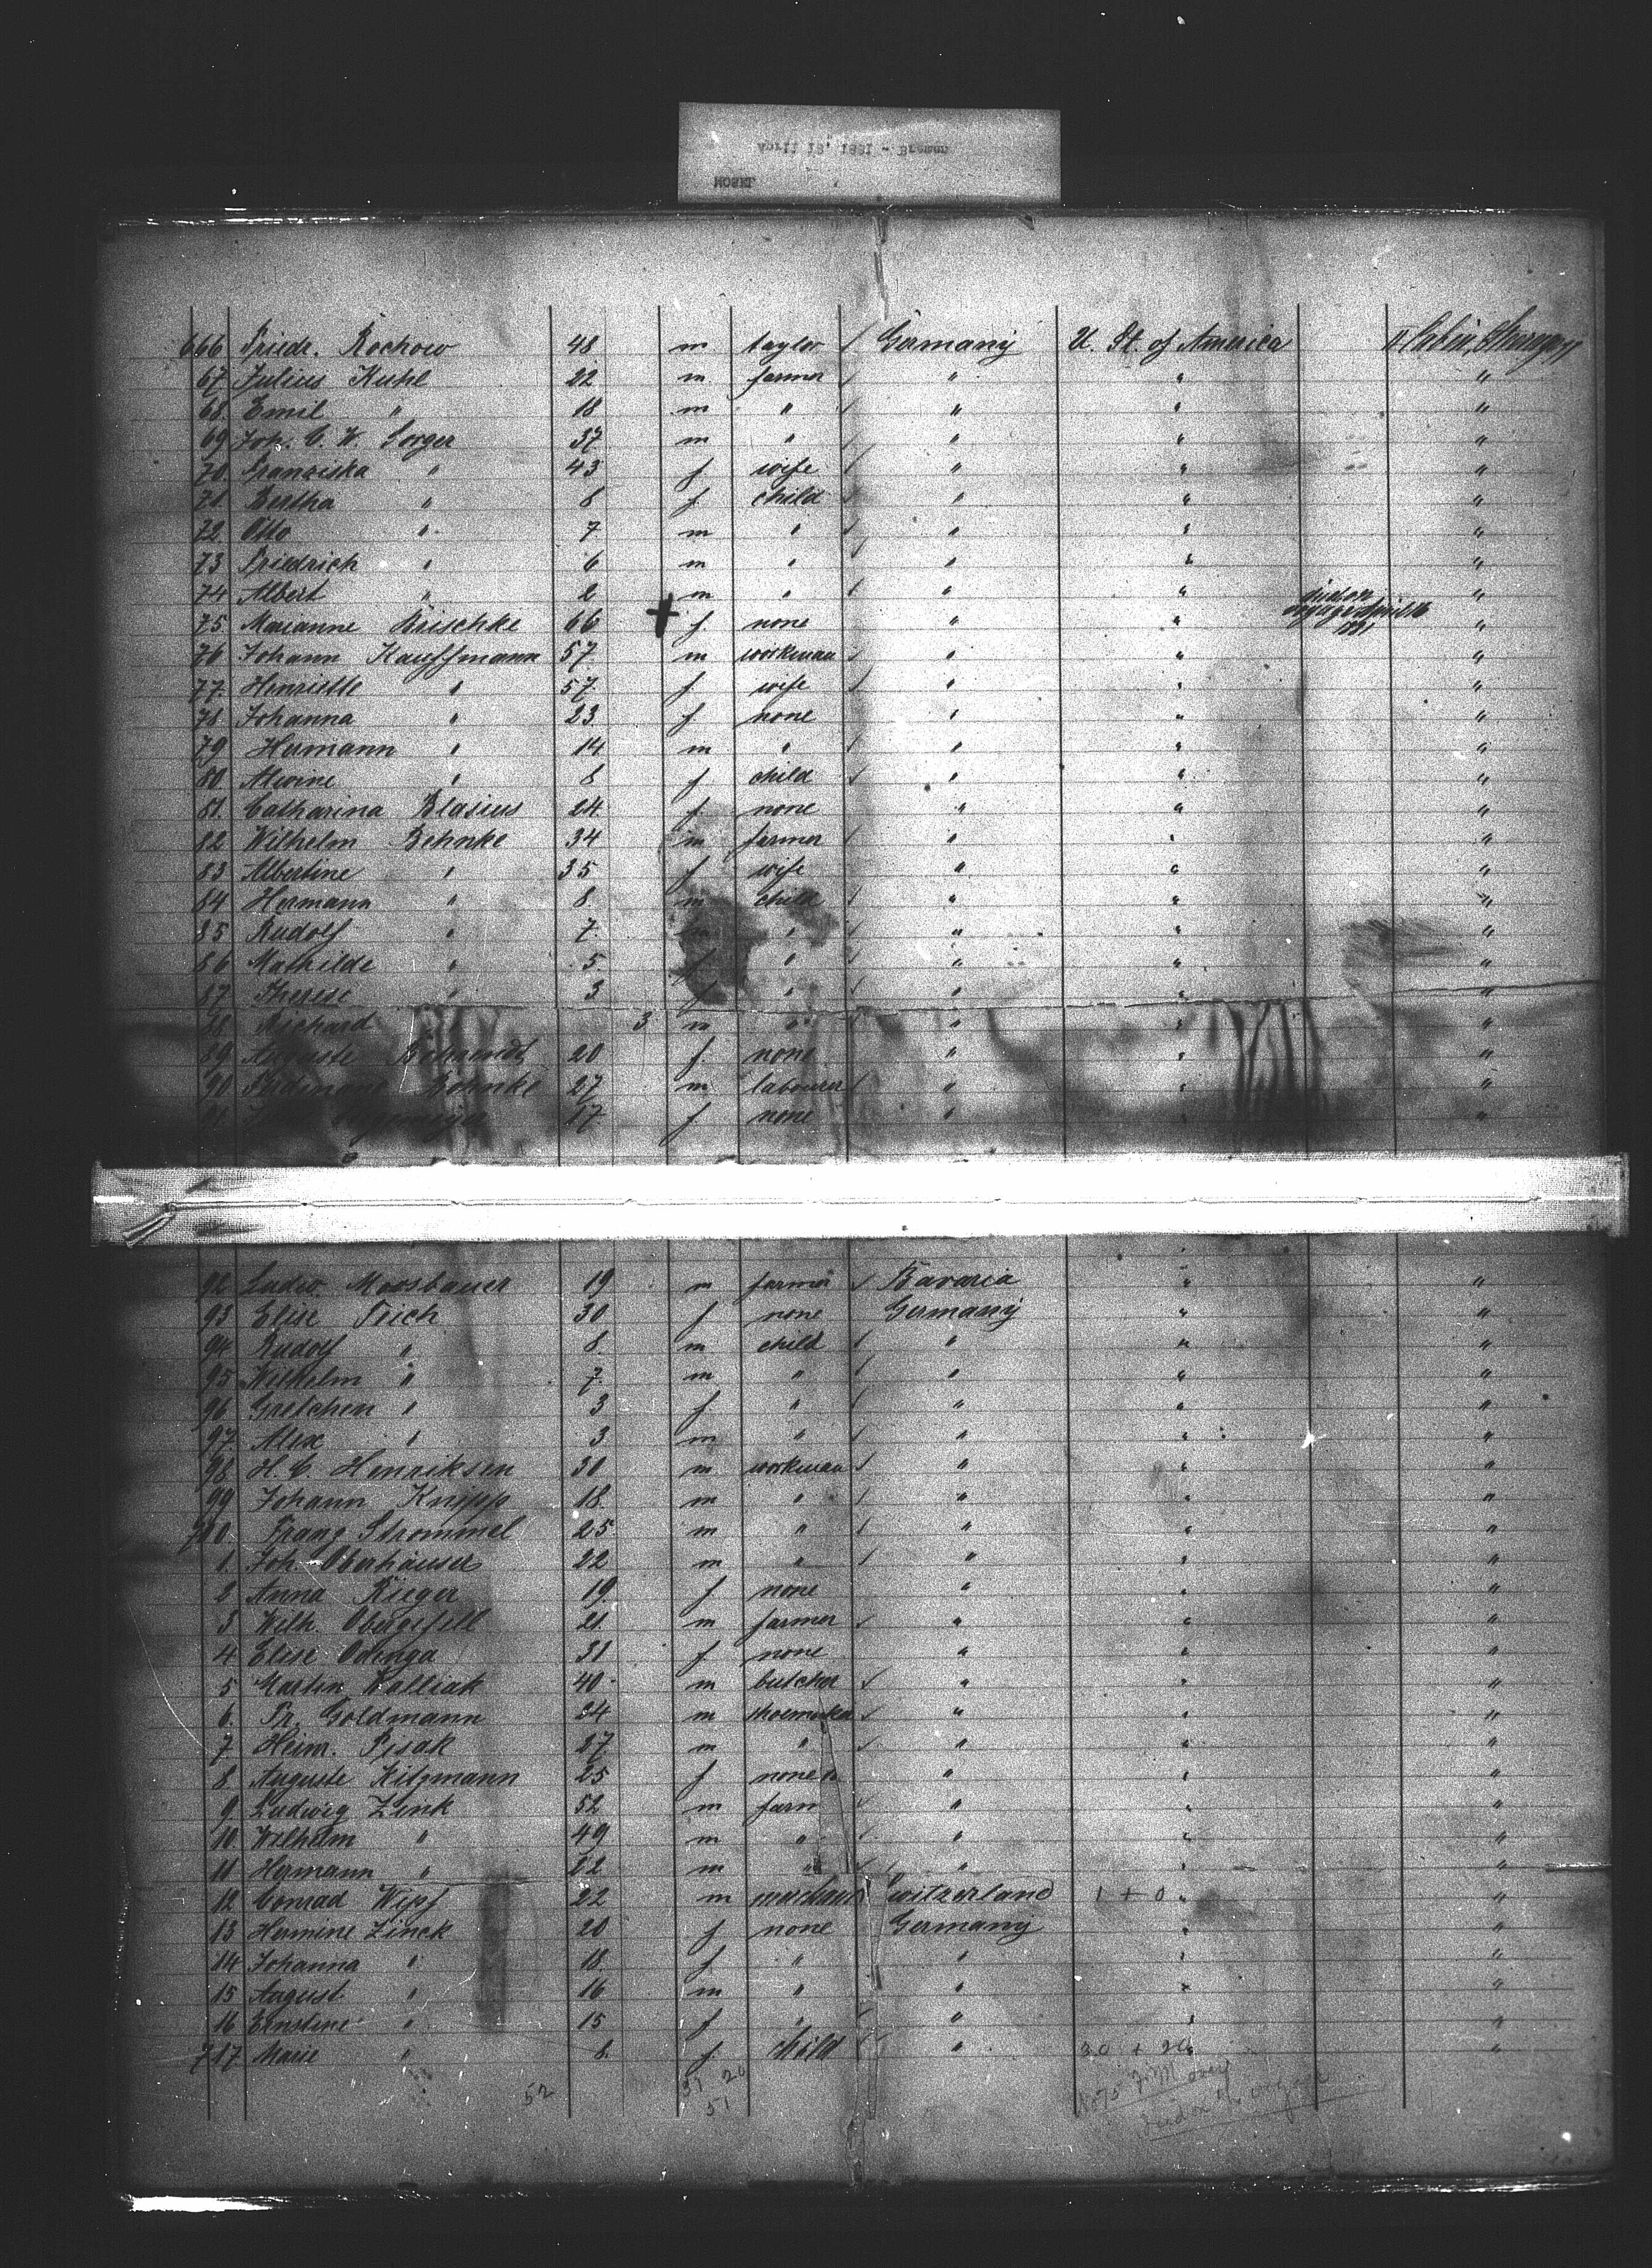 April 18, 1881 - Bremen
MOSEL
666 Friedr. Rochow 48 m taylor / Germany U. St. of America
67 Julius Kuhl 22 m farmer / " " "
68 Emil " 18 m " / " " "
69 Joh. C. W. Sorger 37 m " / " " "
70 Franziska " 43 f wife / " " "
71 Bertha " 8 f child / " " "
72 Otto " 7 m " / " " "
73 Friedrich " 6 m " / " " "
74 Albert " 2 m " / " " "
75 Marianne Krischke 66 + f. none " " died on voyage 1881 "
76 Johann Kauffmann 57 m workman / " " "
77 Henriette " 57 f wife / " " "
78 Johanna " 23 f none " " "
79 Hermann " 14 m " / " " "
80 Alwine " 8 f child / " " "
81. Catharina Blasius 24 f. none " " "
82 Wilhelm Behnke 34 m farmer / " " "
83 Albertine " 35 f wife " " "
84 Hermann " 8. m child / " " "
85 Rudolf " 7. " / " " "
86 Mathilde " 5. f " / " " "
87 Therese " 3 f " / " " "
88 Richard " 3 m " / " " "
89 Auguste 20 f none " " "
90 Behnke 27 m labourer / " " "
91 17 f none " " "
92 Ludw. Moosbauer 19 m farmer / Bavaria " "
93 Elise Frich 30 f none Germany " "
94 Rudolf " 8. m child / " " "
95 Wilhelm " 7. m " / " " "
96 Gretchen " 3 f " / " " "
97. Alex " 3 m " / " " "
98 H. C. Henriksen 30 m workman / " " "
99 Johann Knipp 18. m " / " " "
700. Franz Strommel 25 m " / " " "
1. Joh. Oberhäuser 22 m " / " " "
2 Anna Rieger 19. f none " " "
3 Wilh. Obergfell 21. m farmer / " " "
4 Elise Odinga 31 f none " " "
5 Martin Kolliak 40 m butcher / " " "
6. Fr. Goldmann 24 m shoemaker / " " "
7. Heinr. Pesak 27 m " / " " "
8 Auguste Kitzmann 25 f none " " "
9. Ludwig Zink 52 m farm / " " "
10. Wilhelm " 49 m " / " " "
11 Hermann " 22 m " / " " "
12 Conrad Wipf 22 m merchant Switzerland 1 + 0 " "
13 Hermine Zinck 20 f none Germany " "
14 Johanna " 18. f " " " "
15 August " 16 m " " " "
16 Ernstine " 15 f " / " " "
717 Marie " 8. f. child / " 30 + 20 "
52 31 20
51
No 75
died on voyage